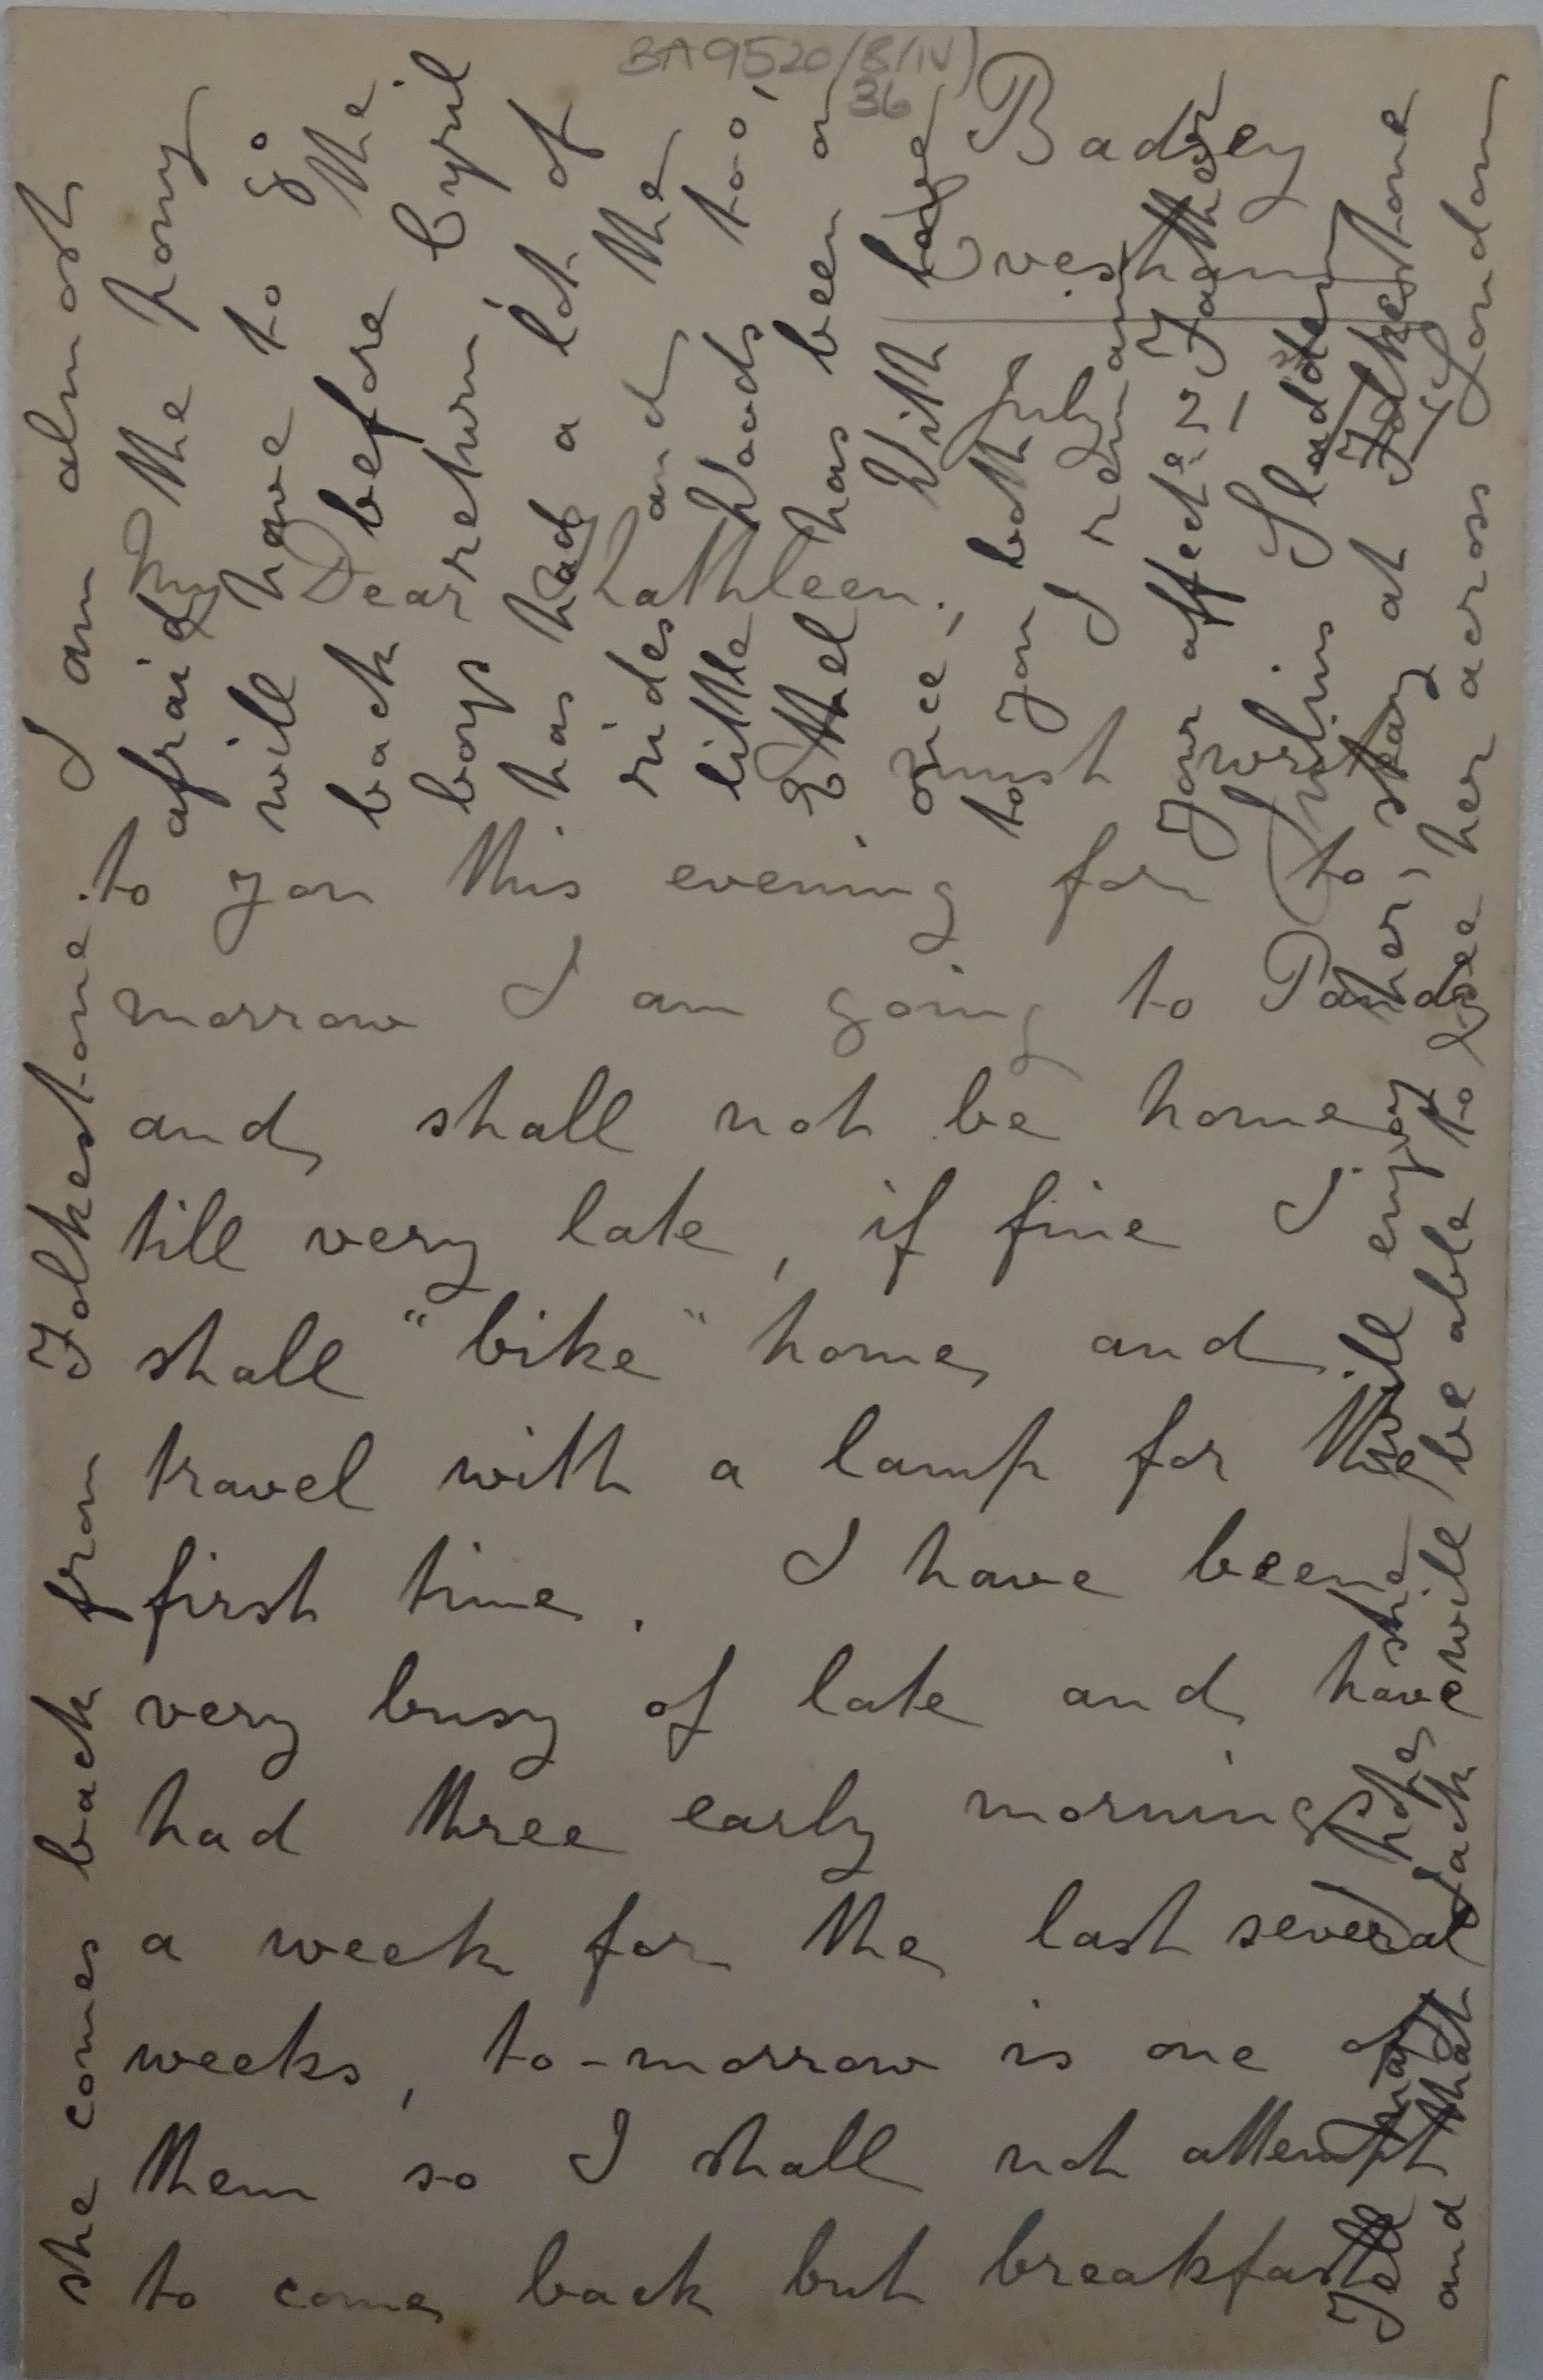 BA9520/B/IV)
36
Badsey
Evesham
July 21
My Dear Kathleen.,
I must write
to you this evening for to
morrow I am going to
and shall not be home
till very late, if fine I
shall "bike" home and
travel with a lamp for the
first time. I have been
very busy of late and have
had three early mornings
a week for the last several
weeks, to-morrow is one of
them so I shall not attempt
to come back but breakfast
Tell Ma I hope she will enjoy her stay at Folkestone
and that Jack will be able to see her across London
she comes back from Folkestone. I am almost
afraid the pony
will have to go
back before the
boys return. Cyril
has had a lot of
rides and the
little Woods too,
Ethel has been on
once, With love
to you both
I remain
Your affecte. Father
Julius Sladden